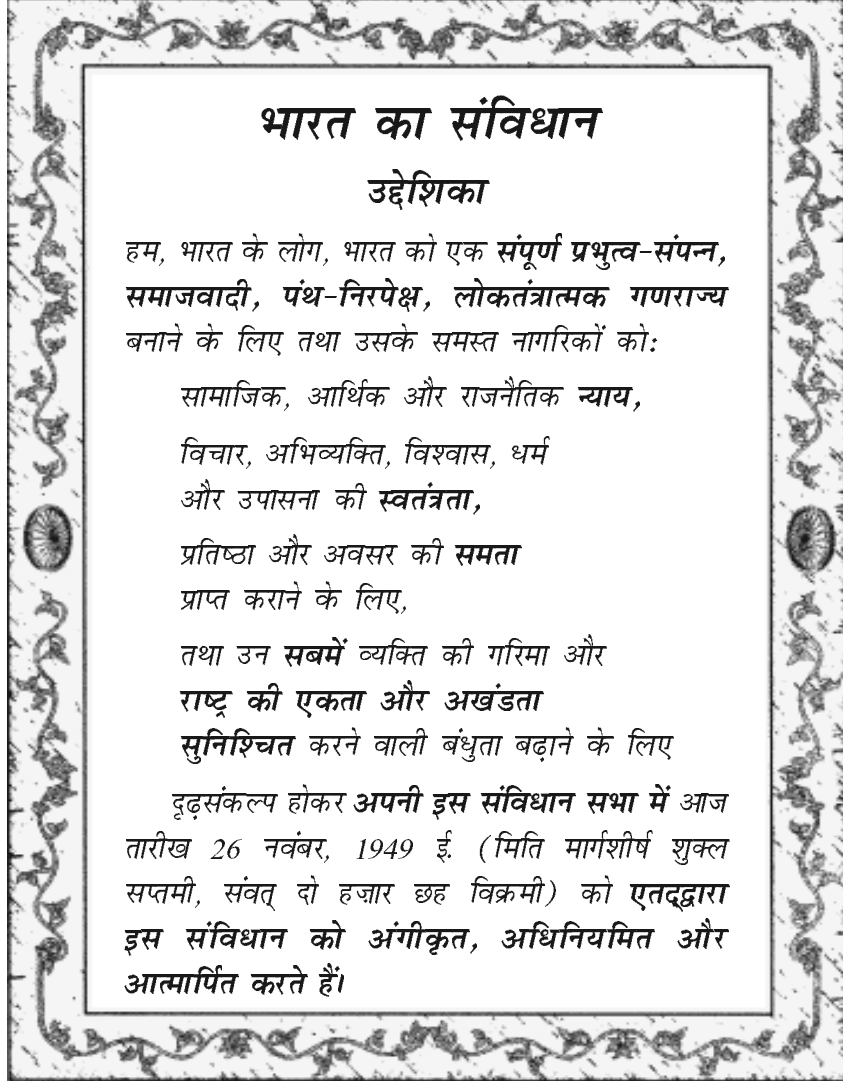 भारत का संविधान
उद्देशिका
हम, भारत के लोग, भारत को एक संपूर्ण प्रभुत्व-संपन्न,
समाजवादी, पंथ-निरपेक्ष, लोकतंत्रात्मक गणराज्य
बनाने के लिए तथा उसके समस्त नागरिकों को:
सामाजिक, आर्थिक और राजनैतिक न्याय,
विचार, अभिव्यक्ति, विश्वास, धर्म
और उपासना की स्वतंत्रता,
प्रतिष्ठा और अवसर की समता
प्राप्त कराने के लिए,
तथा उन सबमें व्यक्ति की गरिमा और
राष्ट्र की एकता और अखंडता
सुनिश्चित करने वाली बंधुता बढ़ाने के लिए
दृढ़संकल्प होकर अपनी इस संविधान सभा में आज
तारीख 26 नवंबर, 1949 ई. (मिति मार्गशीर्ष शुक्ल
सप्तमी, संवत् दो हज़ार छह विक्रमी) को एतद्द्वारा
इस संविधान को अंगीकृत, अधिनियमित और
आत्मार्पित करते हैं।